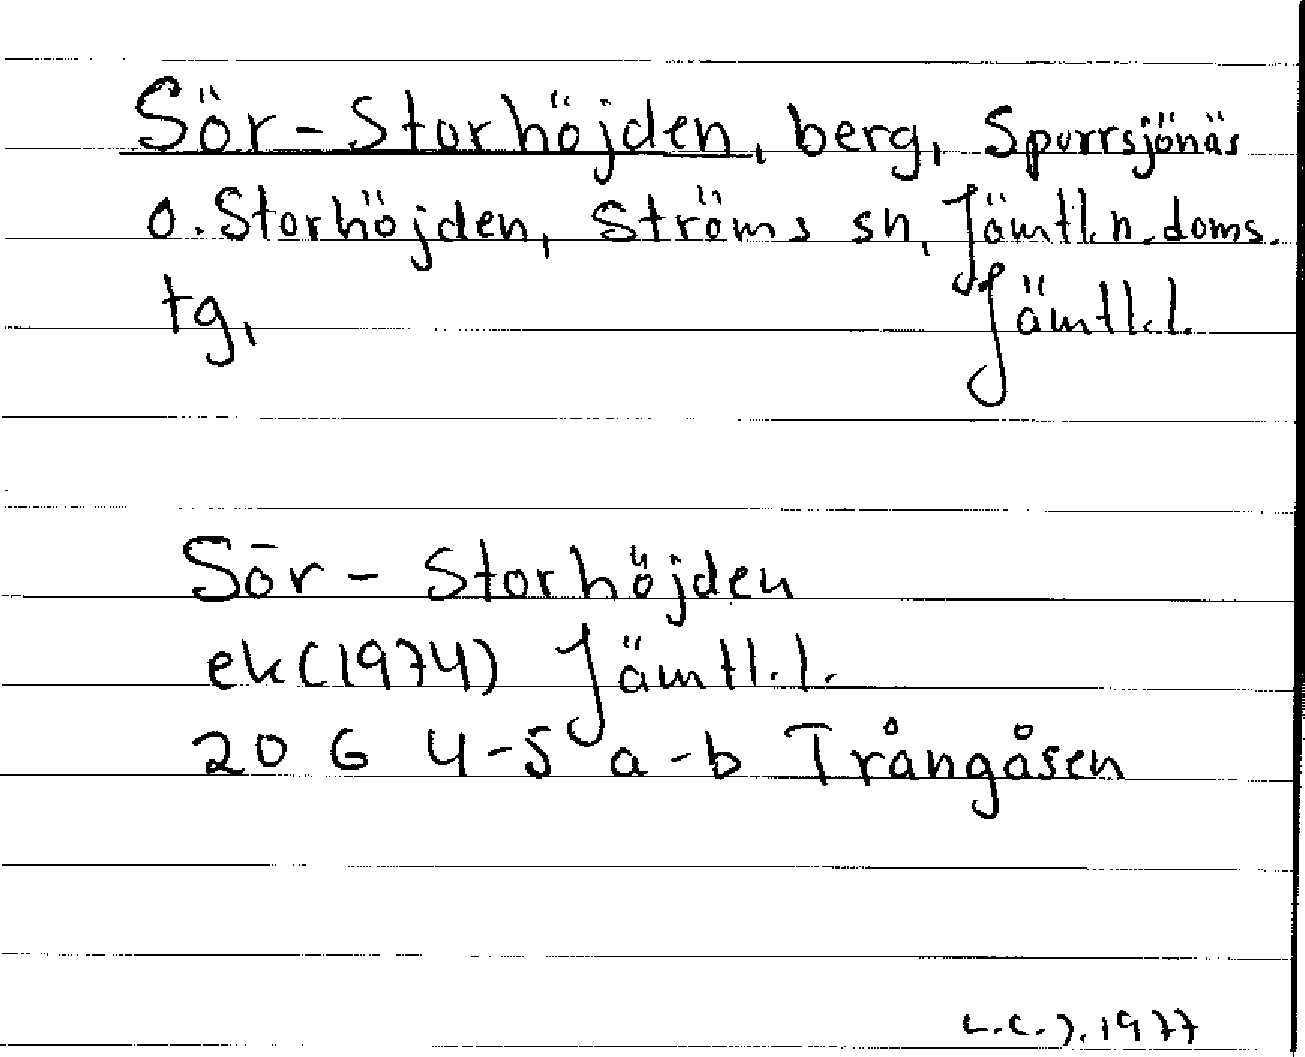 Sör-Storhöjden, berg, Sporrsjönäs
o. Storhöjden, Ströms sn, Jämtl.n.doms.
tg, Jämtl.l.
Sör-Storhöjden
ek(1974) Jämtl.l.
20 G 4-5 a-b Trångåsen
L.C.J. 1977